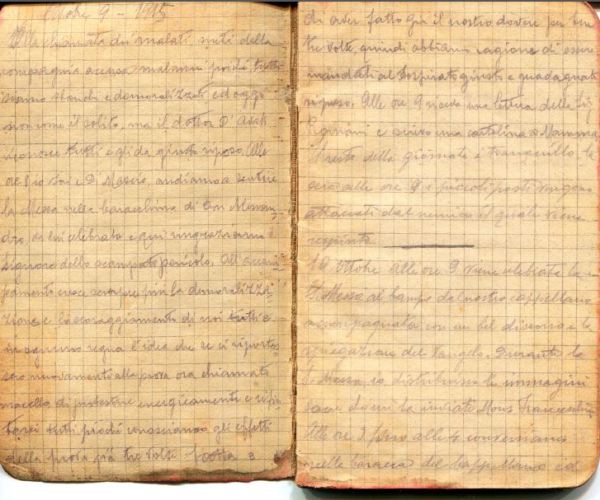 Ottobre 9 - 1915
Alla chiamata dei malati, metà della
compagnia accusa malanni perché tutti
siamo stanchi e demoralizzati ed oggi
siccome il solito, ma il dottor D'
riconosce tutti e gli da giusto riposo. Alle
ore 8 io e Di Mascio, andiamo a sentire
la Messa nella baracchina di Don
dro, da lui celebrata e qui ringraziamo il
Signore dello scampato pericolo. All'accam
pamento cresce sempre più la demoralizza
zione e lo scoraggiamento di noi tutti e
regna l'idea che se ci riportas
sero nuovamente alla prova ora chiamata
macello di protestare energicamente e rifiu
tarsi tutti perché conosciamo gli effetti
della prova già tre volte fatta e
di aver fatto già il nostro dovere per ben
tre volte quindi abbiamo ragione di essere
mandati al sospirato giusto e guadagnato
riposo. Alle ore 9 ricevo una lettera della Sig
Cipriani e scrivo una cartolina a Mamma
Il resto della giornata è tranquillo, la
sera alle ore 9 i piccoli posti vengono
attaccati dal nemico il quale viene
respinto
10 ottobre alle ore 9 viene celebrata la
S. Messa al campo dal nostro cappellano
accompagnata con un bel discorso e la
spiegazione del Vangelo. Durante la
S. Messa io distribuisco le immagini
sacre di cui la inviati Mons
Alle ore 2 fino alle 4 conversiamo
nella baracca del Cappellano ed